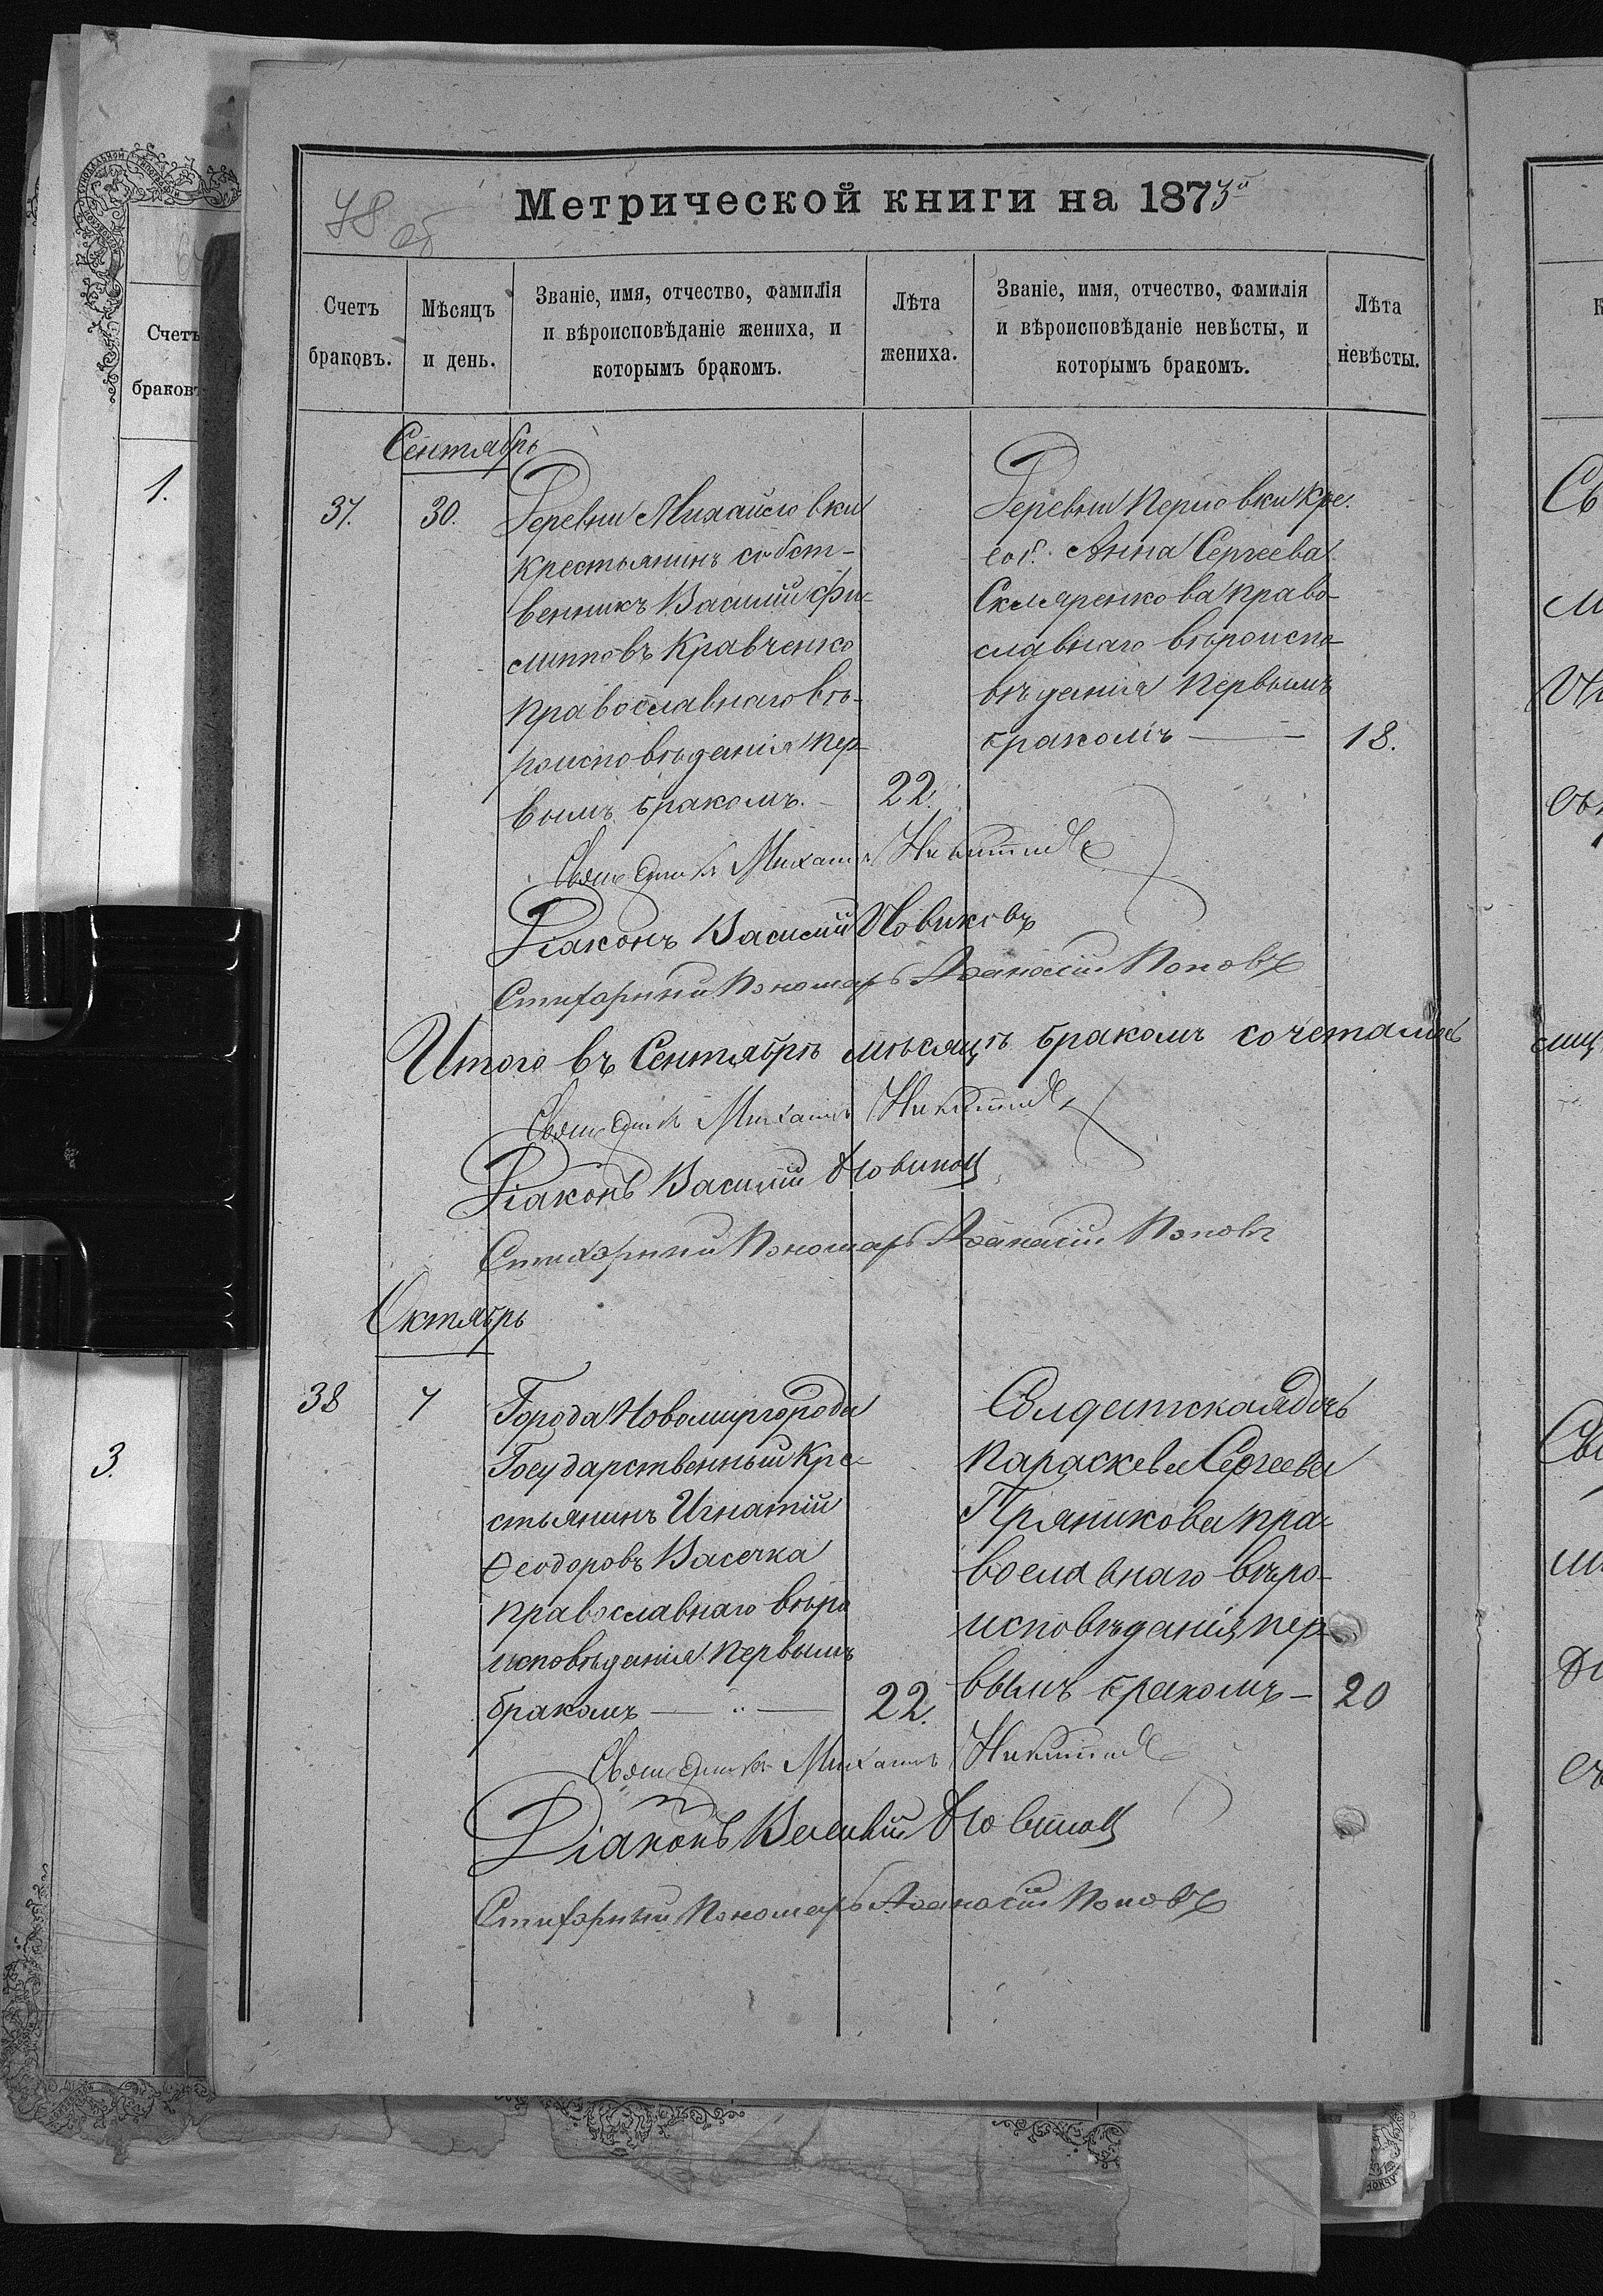 78 об
Метрической книги на 1873й
Счетъ браковъ.
Мѣсяцъ и день.
Званіе, имя, отчество, фамилія и вѣроисповѣданіе жениха, и которымъ бракомъ.
Лѣта жениха.
Званіе, имя, отчество, фамилія и вѣроисповѣданіе невѣсты, и которымъ бракомъ.
Лѣта невѣсты.
Сентябрь
37. 30.
Деревни Михайловки
крестьянинъ собст-
венникъ Василій Фи-
липповъ Кравченко
православнаго вѣ-
роисповѣданія пер-
вымъ бракомъ. 22.
Деревни Перловки кре.
соб. Анна Сергеева
Скляренкова право-
славнаго вѣроиспо-
вѣданія первымъ
бракомъ 18.
Священникъ Михаилъ Никитинъ
Діаконъ Василій Новиковъ
Стихарный Пономарь Аѳанасій Поповъ
Итого въ Сентябрѣ мѣсяцѣ бракомъ сочетались
Священникъ Михаилъ Никитинъ
Діаконъ Василій Новиковъ
Стихарный Пономарь Аѳанасій Поповъ
Октябрь
38 7
Города Новомиргорода
Государственный Кре-
стьянинъ Игнатій
Ѳеодоровъ Васечка
православнаго вѣро
исповѣданія первымъ
бракомъ 22.
Солдатская дочь
Параскева Сергеева
Пряникова пра-
вославнаго вѣро-
исповѣданія пер-
вымъ бракомъ 20
Священникъ Михаилъ Никитинъ
Діаконъ Василій Новиковъ
Стихарный Пономарь Аѳанасій Поповъ
Счетъ
браковъ
1.
3.